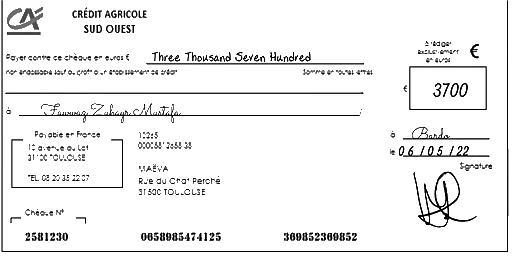 CRÉDIT AGRICOLE
SUD OUEST
à rédiger
exclusivement
en euros
€
Payer contre ce chèque en euros € Three Thousand Seven Hundred
non endossable sauf au profit d'un établissement de crédit Somme en toutes lettres
€ 3700
à Fawwaz Zuhayr Mustafa
Payable en France
10 avenue du Lot
31100 TOULOUSE
TEL. 08 20 35 22 07
10265
00008812688 38
MAËVA
Rue du Chat Perché
31500 TOULOUSE
à Bardo
le 06/05/22
Signature
Chèque N°
2581230 0658985474125 369852369852